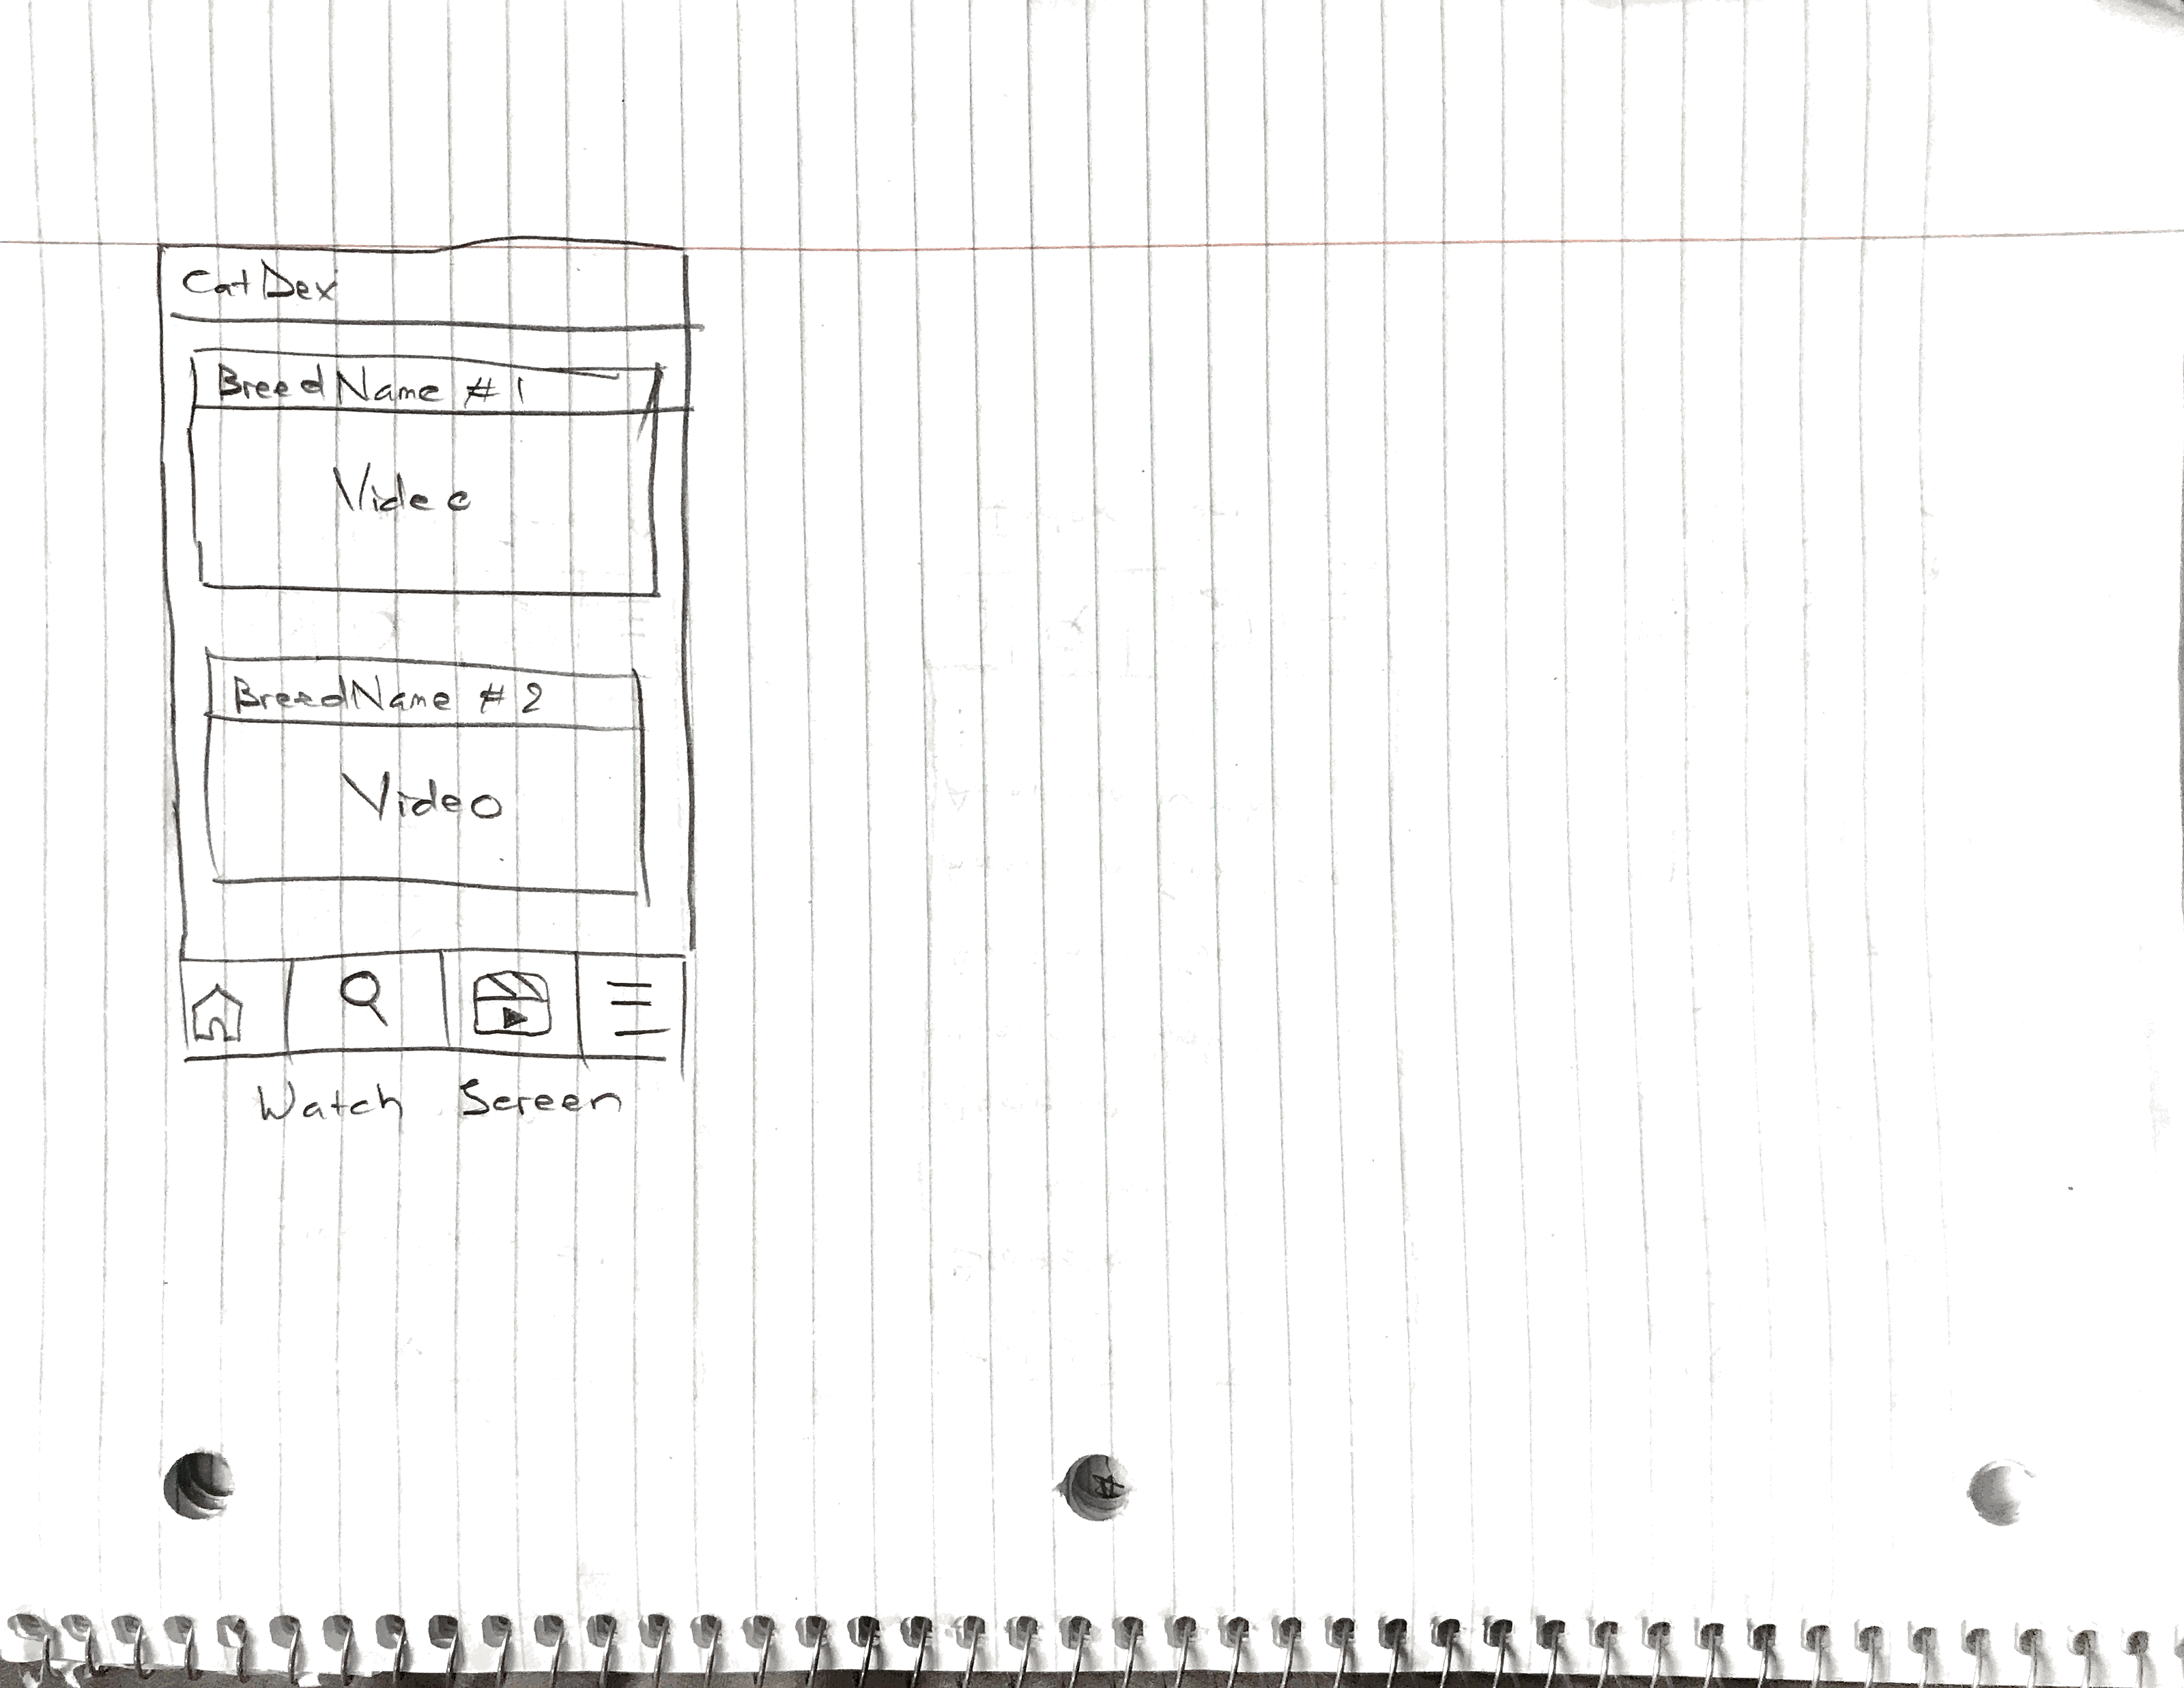 CatDex
Breed Name # 1
Video
BreedName # 2
Video
Watch Screen